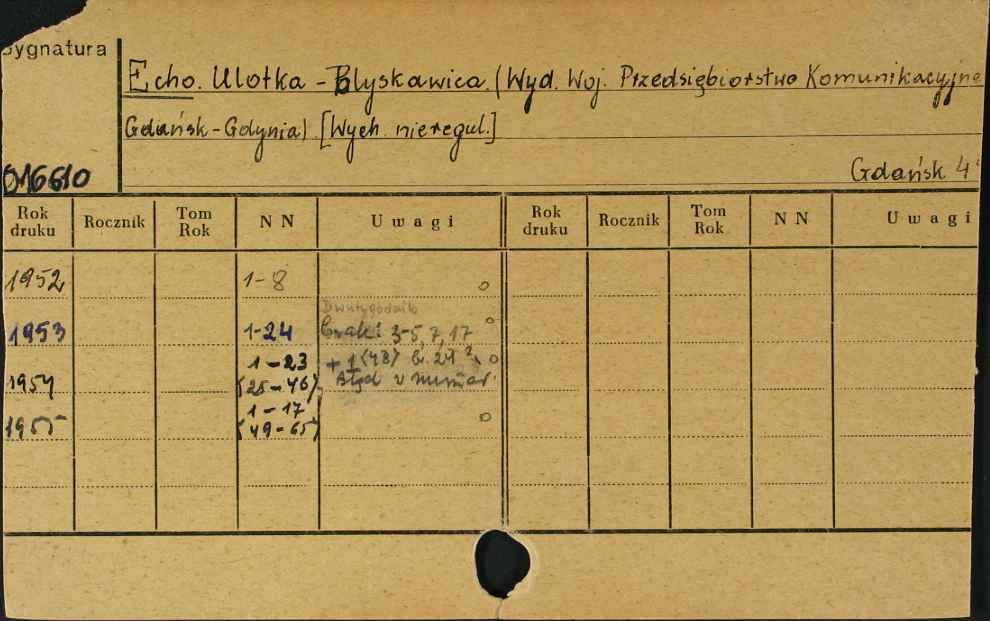 Sygnatura
Echo. Ulotka - Błyskawica. (Wyd. Woj. Przedsiębiorstwo Komunikacyjne
Gdańsk-Gdynia) [Wych. nieregul.]
016610
Gdańsk 4°
Rok druku Rocznik Tom Rok N N Uwagi Rok druku Rocznik Tom Rok N N Uwagi
1952 1-8
Dwutygodnik
1953 1-24 Brak: 3-5, 7, 17
1-23 + 1 <48> b. 24 ?
1954 (25-46) Błąd w numer.
1-17
1955 (49-65)